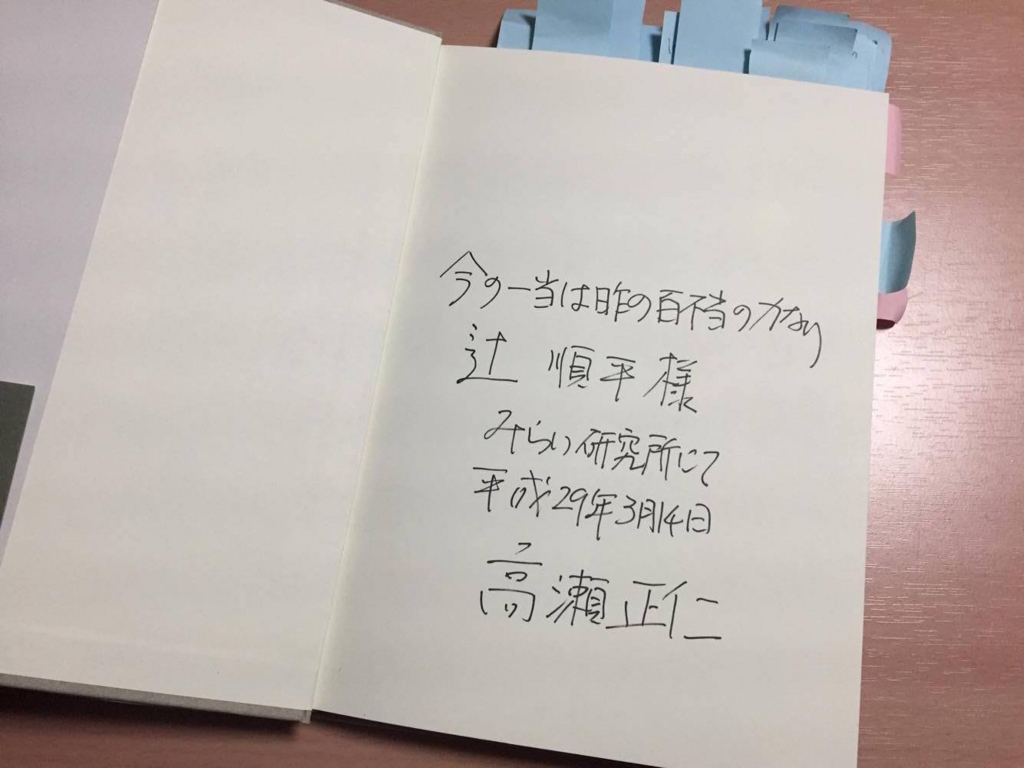 今の一当は昨の百不当の力なり
辻 順平様
みらい研究所にて
平成29年3月14日
高瀬正仁